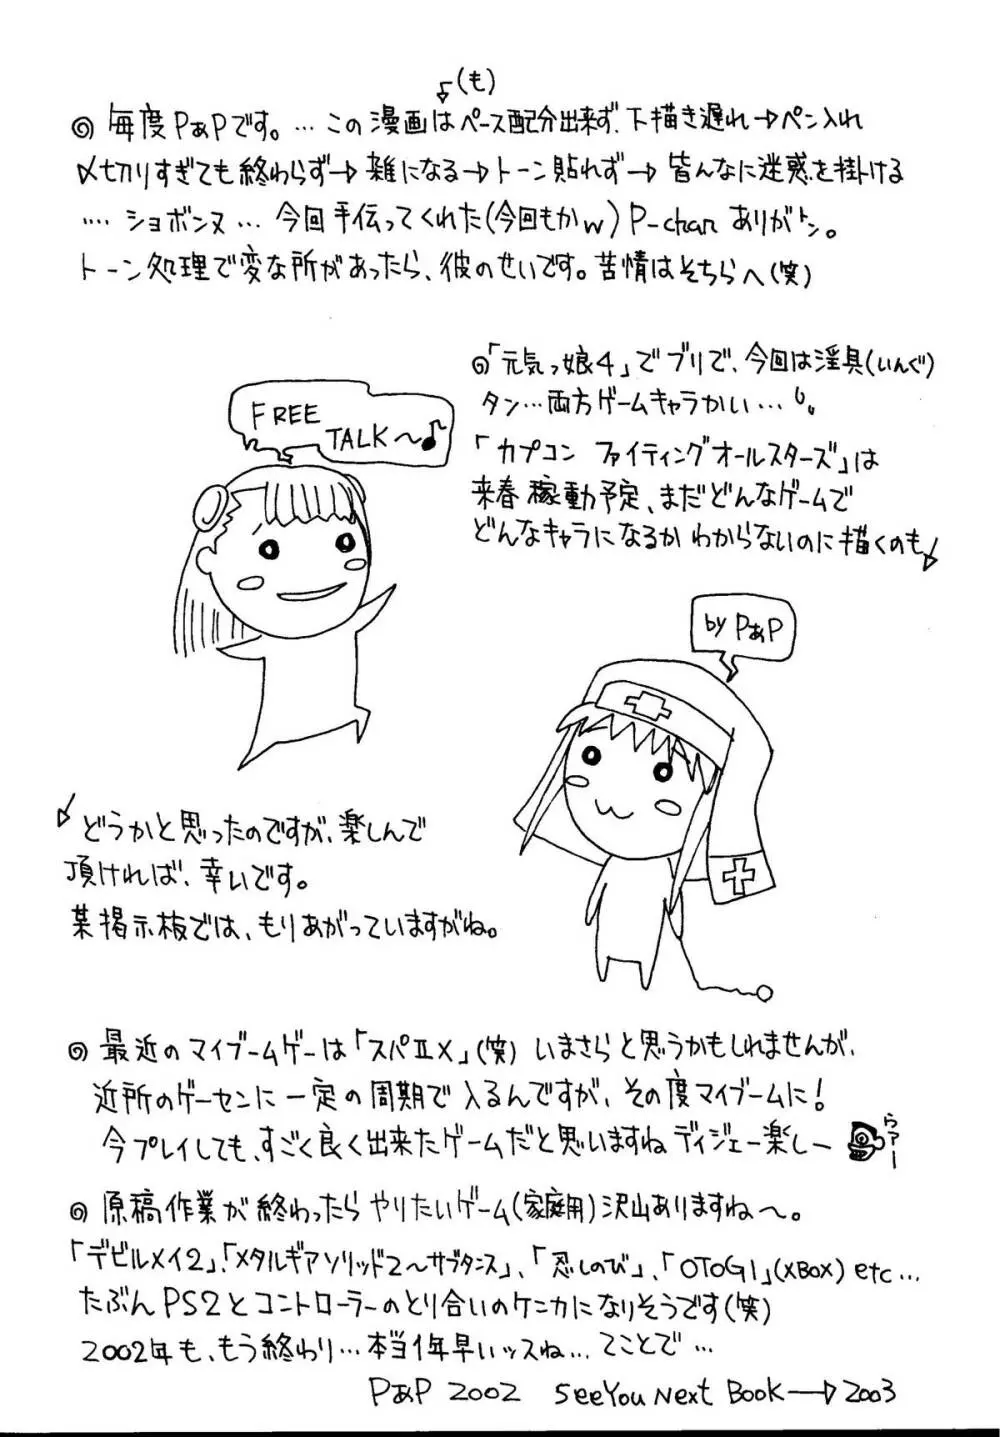 (も)
◎ 毎度PぁPです。…この漫画はペース配分出来ず、下描き遅れ→ペン入れ
〆切りすぎても終わらず→雑になる→トーン貼れず→皆んなに迷惑を掛ける
…. ショボンヌ … 今回手伝ってくれた(今回もかw) P-chan ありがトン。
トーン処理で変な所があったら、彼のせいです。苦情はそちらへ(笑)
◎「元気っ娘4」でブリで、今回は淫具(いんぐ)
タン…両方ゲームキャラかい…
「カプコン ファイティングオールスターズ」は
来春稼動予定、まだどんなゲームで
どんなキャラになるかわからないのに描くのも
FREE
TALK〜♪
by PぁP
どうかと思ったのですが、楽しんで
頂ければ、幸いです。
某掲示板では、もりあがっていますがね。
◎ 最近のマイブームゲーは「スパⅡX」(笑) いまさらと思うかもしれませんが、
近所のゲーセンに一定の周期で入るんですが、その度マイブームに!
今プレイしても、すごく良く出来たゲームだと思いますねディジェー楽しー
らァー
◎ 原稿作業が終わったらやりたいゲーム(家庭用)沢山ありますね〜。
「デビルメイ2」、「メタルギアソリッド2〜サブタンス」、「忍しのび」、「OTOGI」(XBOX) etc…
たぶんPS2とコントローラーのとり合いのケンカになりそうです(笑)
2002年も、もう終わり…本当1年早いッスね… てことで…
PぁP 2002 See You Next Book→2003